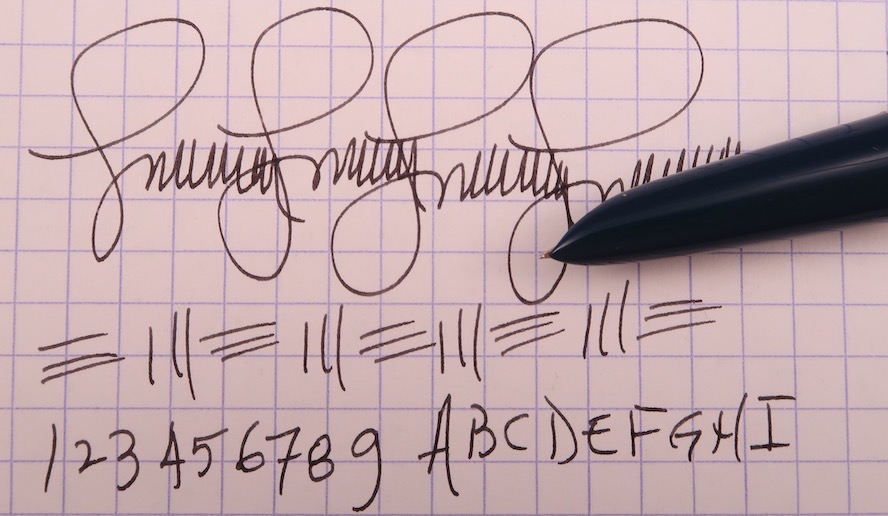 123456789 ABCDEFGHI